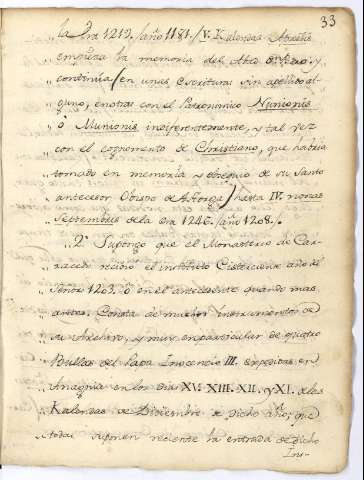 33
„ la Era 1219. /año 1181./ V. Kalendas Aprilis
„ empieza la memoria del
„ continúa / en unas Escrituras sin apellido al-
„ guno, en otras con el Patronimico Nunionis
„ ò Munionis indiferentemente, y tal vez
„ con el cognomento de Christiano, que habria
„ tomado en memoria y obsequio de su santo
„ antecesor Obispo de Astorga / hasta IV. nonas
„ Septembris de la Era 1246. /año 1208./.
„ 2.º Supongo que el Monasterio de Car-
„ racedo recibió el instituto Cisterciense año del
„ Señor 1203. ò en el antecedente quando mas
„ atras. Consta de muchos instrumentos de
„ su Archivo, y muy en particular de quatro
„ Bullas del Papa Inocencio III. expedidas en
„ Anagnia en los dias XV. XIII. XII. y XI. de las
„ Kalendas de Diciembre de dicho año; que
„ todas suponen reciente la entrada de dicho
Ins-